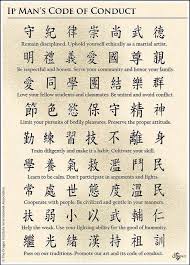 IP MAN'S CODE OF CONDUCT
守紀律崇尚武德
Remain disciplined. Uphold yourself ethically as a martial artist.
明禮義愛國尊親
Be respectful and honest. Serve your community and honor your family.
愛同學團結樂群
Love your fellow students and classmates. Be united and avoid conflict.
節色慾保守精神
Limit your pursuits of bodily pleasures. Preserve the proper attitude.
勤練習技不離身
Train diligently and make it a habit. Cultivate your skill.
學養氣戒濫鬥民
Learn to be calm. Don't participate in arguments and fights.
常處世態度溫民
Cooperate with people. Be civilized and gentle in your manners.
扶弱小以武輔仁
Help the weak. Use your fighting ability for the good of humanity.
繼光緒漢持祖訓
Pass on our traditions. Promote our art and its code of conduct.